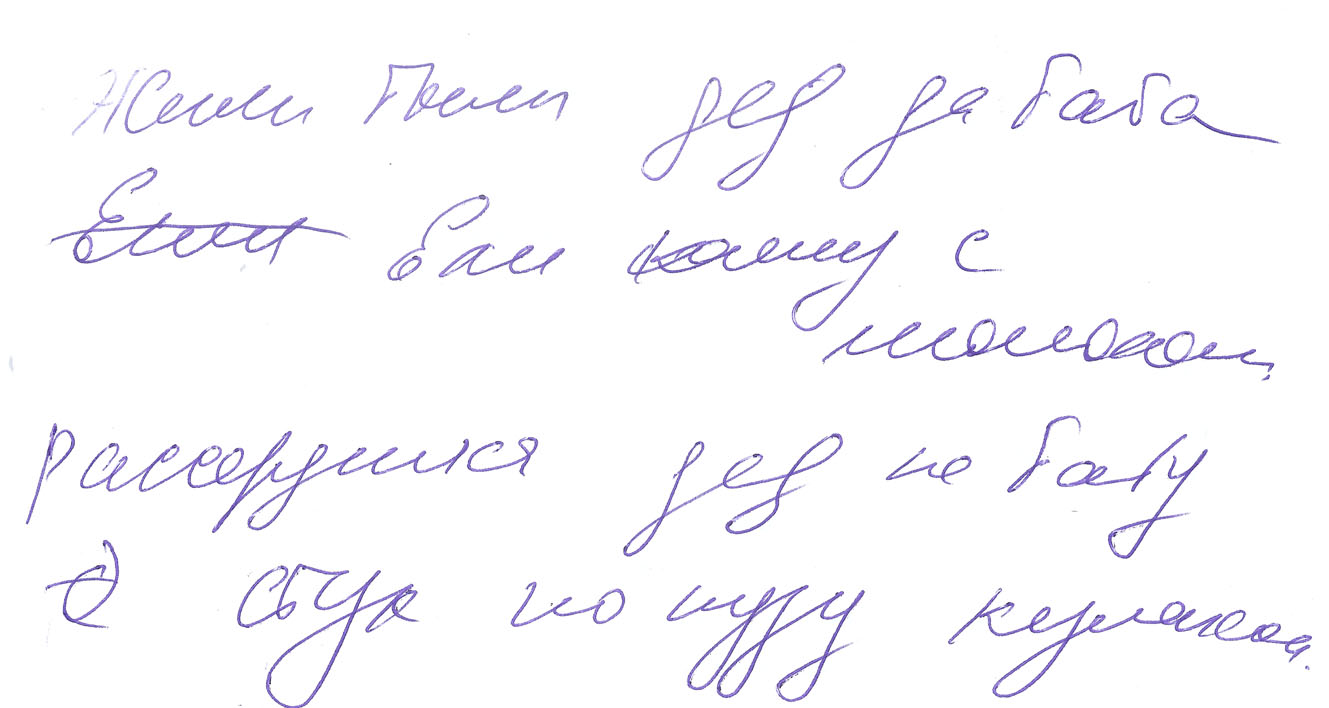 Жили были дед да баба
Ели кашу с
молоком.
рассердился дед на бабу
стук по пузу кулаком.